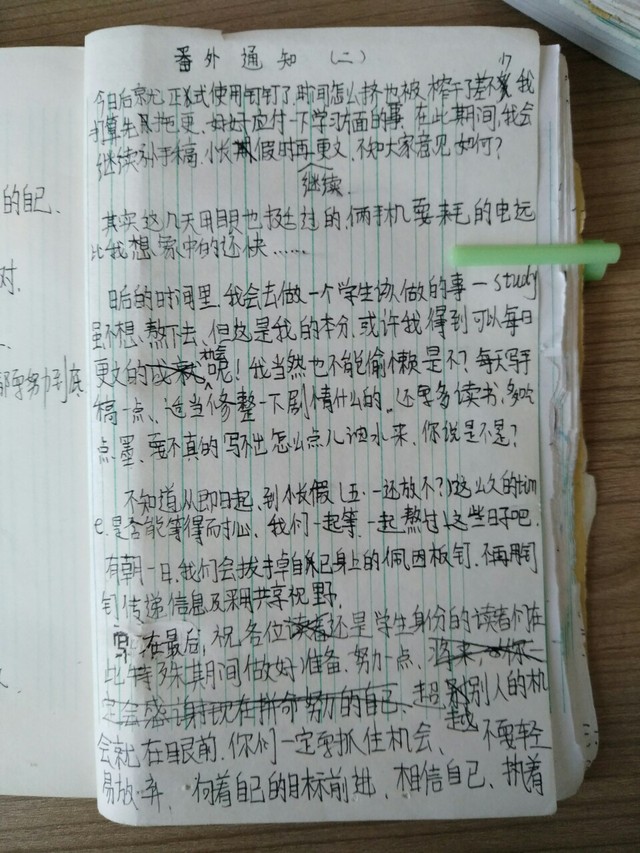 番外通知(二)
今日后京尤正式使用钉钉了.时间怎么挤也被榨干了差不多.我
打算先不拖更、好好应付一下学习方面的事.在此期间,我会
继续孙手稿.小长假时再更文.不知大家意见如何?
继续.
其实这几天用眼也极过的.俩手机要耗的电远
比我想象中的还快……
日后的时间里.我会去做一个学生该做的事—study
虽不想熬下去、但这是我的本分.或许我得到可以每日
更文的机会呢!我当然也不能偷懒是不?每天写手
稿一点、适当修整一下剧情什么的.还要多读书.多吃
点墨、要不真的写不出怎么点儿油水来.你说是不是?
不知道从即日起、到小长假(五·一还放不?)这么久的tim
e.是否能等得耐心、我们一起等.一起熬过这些日子吧.
有朝一日.我们会拔掉自己身上的 板钉.不再用钉
钉传递信息及采用共享视野.
在最后,祝各位还是学生身份的读者们在
此特殊期间做好准备.努力一点、
定会感谢现在拼命努力的自己.超越别人的机
会就在眼前.你们一定要抓住机会、不要轻
易放弃、向着自己的目标前进、相信自己、执着
的自己、
对.
都要努力到底